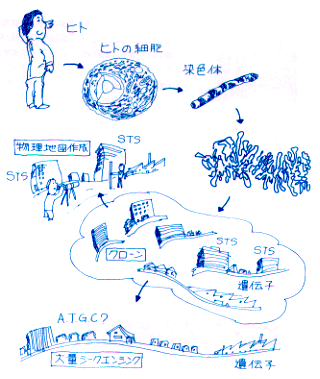 ヒト
ヒトの細胞
染色体
物理地図作成
STS
STS
STS
STS
クローン
遺伝子
A.T.G.C?
大量シークエンシング
遺伝子